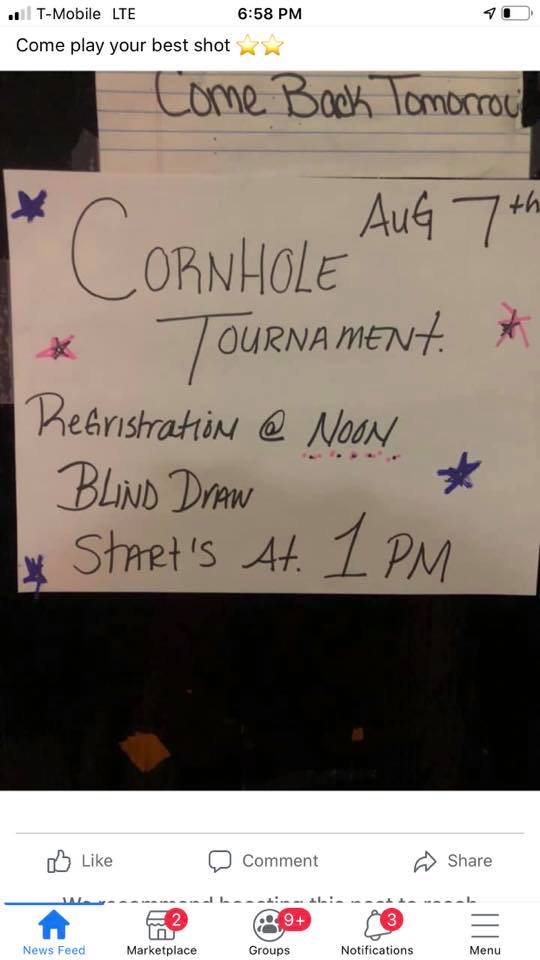 T-Mobile LTE 6:58 PM
Come play your best shot ⭐⭐
Come Back Tomorrow
AUG 7th
CORNHOLE
TOURNAMENT.
Regristration @ NOON
BLIND DRAW
START'S At. 1 PM
Like Comment Share
We recommend boosting this post to reach
2 9+ 3
News Feed Marketplace Groups Notifications Menu